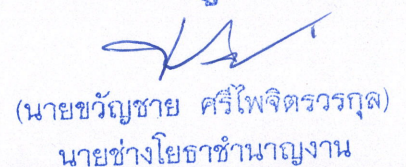 (นายขวัญชาย ศรีไพจิตรวรกุล)
นายช่างโยธาชำนาญงาน